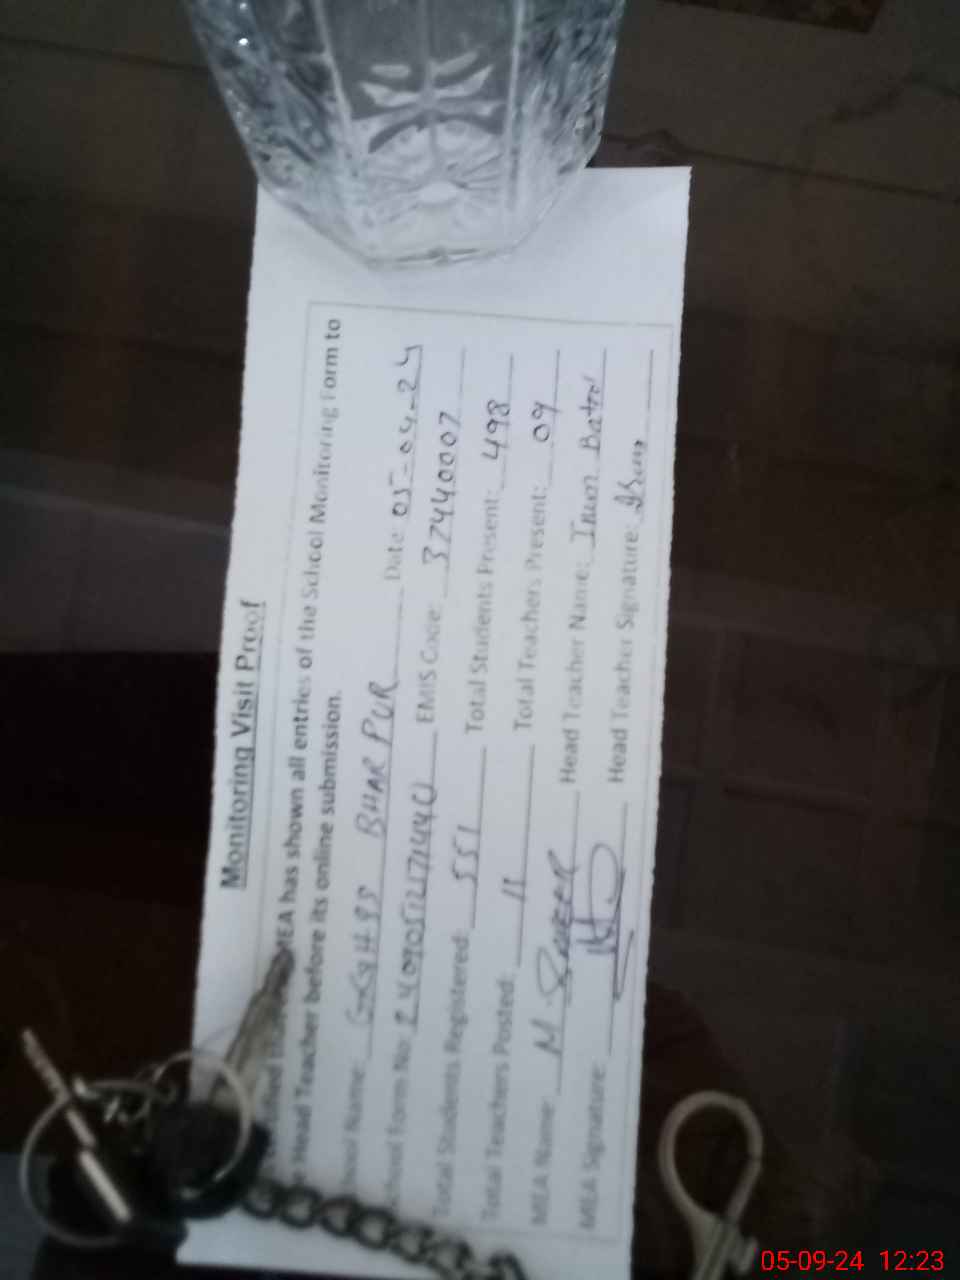 Monitoring Visit Proof
MEA has shown all entries of the School Monitoring Form to
Head Teacher before its online submission.
Name: GGHSS BHARPUR Date: 05-09-24
Form No: EMIS Code: 37440007
Total Students Registered: 551 Total Students Present: 498
Total Teachers Posted: 11 Total Teachers Present: 09
MEA Name: M. Head Teacher Name: Irum Batol
MEA Signature: Head Teacher Signature: Irum
05-09-24 12:23